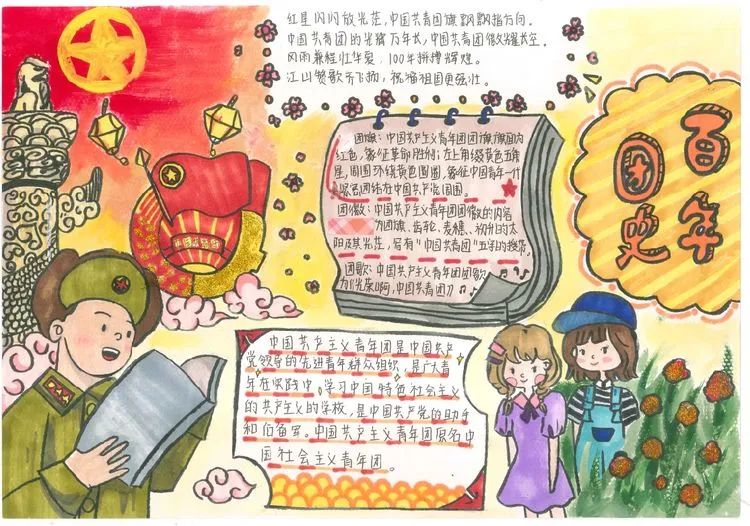 红星闪闪放光芒，中国共青团旗飘飘指方向。
中国共青团的光辉万年长，中国共青团徽耀长空。
风雨兼程壮华夏，100年拼搏辉煌。
江山赞歌齐飞扬，祝福祖国更强壮。
团旗：中国共产主义青年团团旗旗面为
红色，象征革命胜利；左上角缀黄色五角
星，周围环绕黄色圆圈，象征中国青年一代
紧密团结在中国共产党周围。
团徽：中国共产主义青年团团徽的内容
为团旗、齿轮、麦穗、初升的太
阳及其光芒，写有“中国共青团”五字的绶带。
团歌：中国共产主义青年团团歌
为《光荣啊，中国共青团》
百年
团史
中国共青团
中国共产主义青年团是中国共产
党领导的先进青年群众组织，是广大青
年在实践中学习中国特色社会主义
的共产主义的学校，是中国共产党的助手
和后备军。中国共产主义青年团原名中
国社会主义青年团。